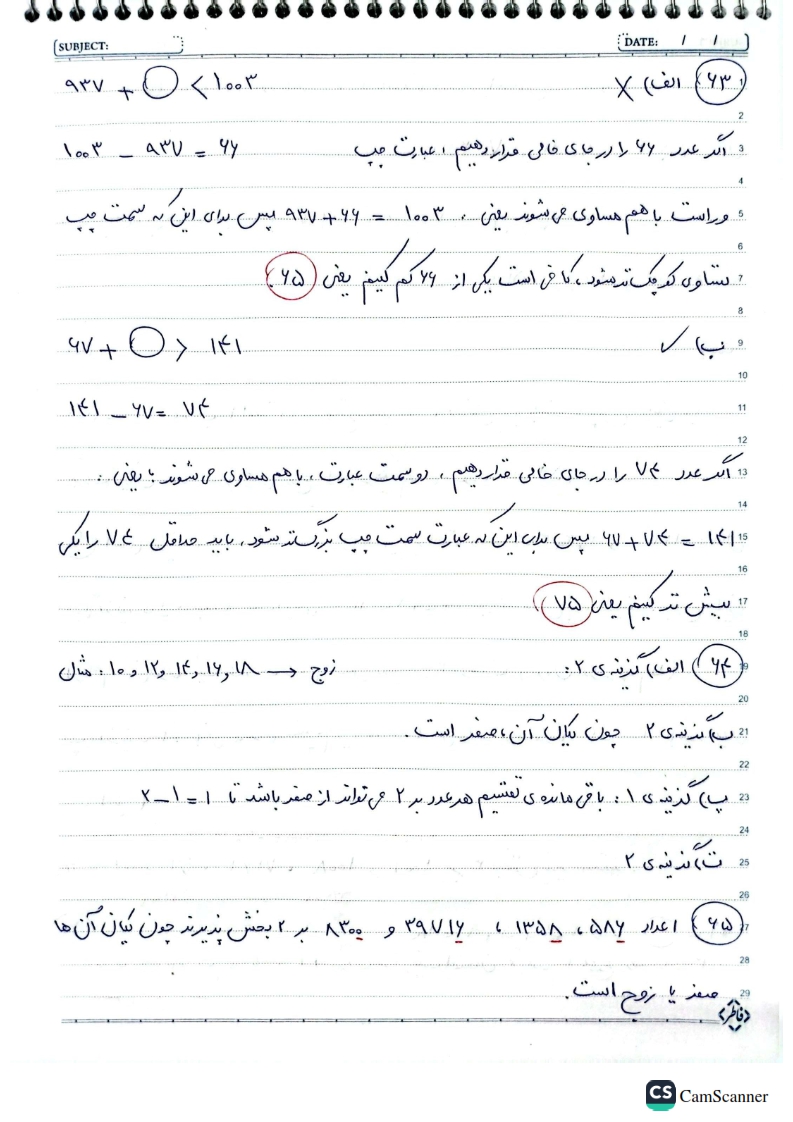 SUBJECT: DATE: / /
۶۳ الف) X ۹۳۷ + ○ < ۱۰۰۳
اگر عدد ۶۶ را در جای خالی قرار دهیم، عبارت چپ ۱۰۰۳ - ۹۳۷ = ۶۶
و راست با هم مساوی می‌شوند یعنی، ۱۰۰۳ = ۹۳۷+۶۶ پس برای این که سمت چپ
تساوی کوچک‌تر شود، کافی است یکی از ۶۶ کم کنیم یعنی ۶۵
ب) ✓ ۶۷ + ○ > ۱۴۱
۱۴۱ - ۶۷ = ۷۴
اگر عدد ۷۴ را در جای خالی قرار دهیم، دو سمت عبارت، با هم مساوی می‌شوند؛ یعنی:
۱۴۱ = ۶۷+۷۴ پس برای این که عبارت سمت چپ بزرگ‌تر شود، باید حداقل ۷۴ را یکی
بیش‌تر کنیم یعنی ۷۵
۶۴ الف) گزینه‌ی ۲: زوج → ۱۸ و ۱۶ و ۱۴ و ۱۲ و ۱۰ : مثال
ب) گزینه‌ی ۲ چون یکان آن، صفر است.
پ) گزینه‌ی ۱: باقی مانده‌ی تقسیم هر عدد بر ۲ می‌تواند از صفر باشد تا ۱ = ۱ - ۲
ت) گزینه‌ی ۲
۶۵ اعداد ۵۸۶، ۱۳۵۸، ۳۹۷۱۶ و ۸۳۰۰ بر ۲ بخش پذیرند چون یکان آن‌ها
صفر یا زوج است.
CS CamScanner